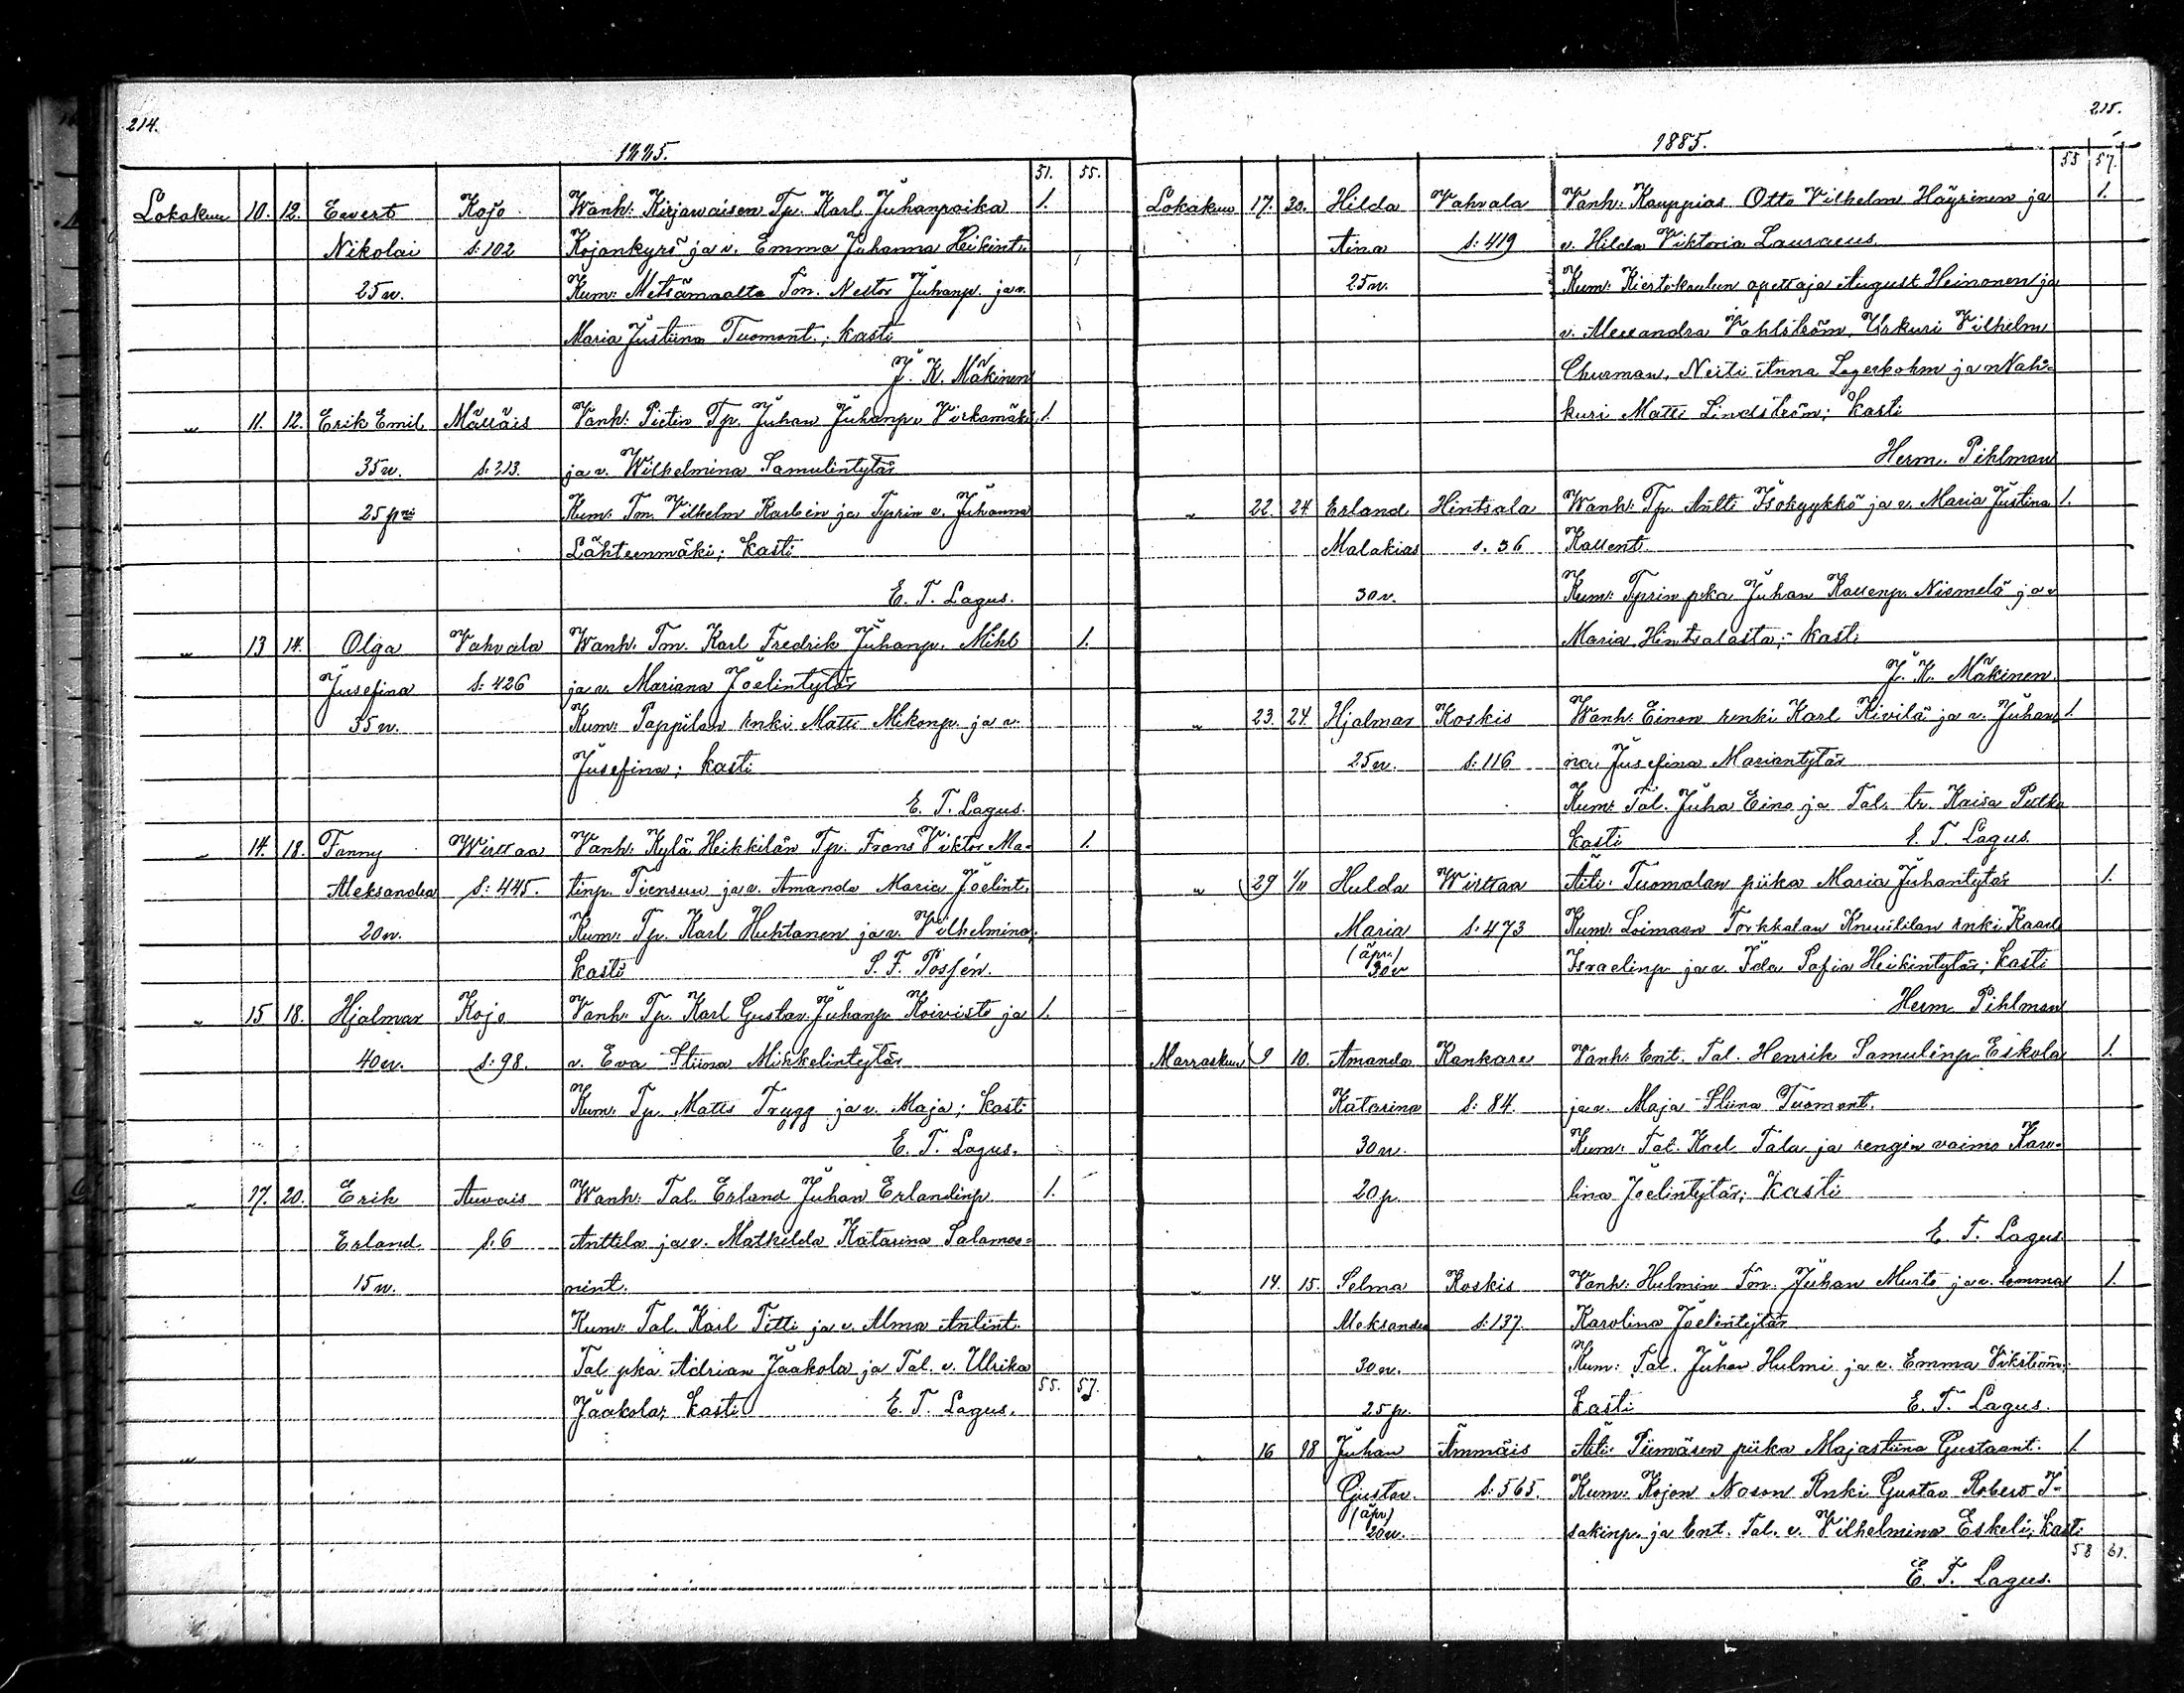 214.
1885.
51. 55.
Lokakuu 10. 12. Evert Kojo Wanh: Kirjawaisen Tp. Karl Juhanpoika 1.
Nikolai s: 102 Kojankyrö ja v. Emma Juhanna Heikint.
25 v. Kum: Metsämaalta Tm. Nestor Juhanp. ja v.
Maria Justiina Tuomont.; kasti
J. K. Mäkinen
" 11. 12. Erik Emil Mälläis Vanh: Pietin Tp. Juhan Juhanp. Virkamäki 1.
35 v. s: 213. ja v. Wilhelmina Samulintytär
25 p Kum: Tm. Vilhelm Karlein ja Tprin v. Juhanna
Lähteenmäki; kasti
E. T. Lagus.
" 13 14. Olga Vahvala Wanh: Tm. Karl Fredrik Juhanp. Mihl 1.
Jusefina s: 426 ja v. Mariana Joelintytär
35 v. Kum: Pappilan renki Matti Mikonp. ja v.
Jusefina; kasti
E. T. Lagus.
" 14. 18. Fanny Wirttaa Vanh: Kylä Heikkilän Tp. Frans Viktor Ma- 1.
Aleksandra s: 445. tinp. Tiensuu ja v. Amanda Maria Joelint.
20 v. Kum: Tp. Karl Huhtanen ja v. Vilhelmina;
kasti S. F. Possén.
" 15 18. Hjalmar Kojo Vanh: Tp. Karl Gustav Juhanp. Koivisto ja 1.
40 v. s: 98. v. Eva Stiina Mikkelintytär
Kum: Tp. Matti Trygg ja v. Maja; kasti
E. T. Lagus.
" 17. 20. Erik Auvais Wanh: Tal. Erland Juhan Erlandinp. 1.
Erland s: 6 Anttila ja v. Mathilda Katarina Salamo=
15 v. nint.
Kum: Tal. Karl Titti ja v. Alma Antint.
Tal. pka Adrian Jaakola ja Tal. v. Ulrika
55. 57.
Jaakola; kasti E. T. Lagus.
"
215.
1885.
55 57.
Lokakuu 17. 20. Hilda Vahvala Vanh: Kauppias Otto Vilhelm Häyrinen ja 1.
Aina s: 419 v. Hilda Viktoria Lauraeus.
25 v. Kum: Kiertokoulun opettaja August Heinonen ja
v. Alexandra Vahlström, Urkuri Vilhelm
Churman, Neiti Anna Lagerbohm ja Nah=
kuri Matti Lindström; kasti
Herm. Pihlman
" 22. 24. Erland Hintsala Wanh: Tp. Antti Isokyykkö ja v. Maria Justina 1.
Malakias s. 36 Kallent.
30 v. Kum: Tprin pka Juhan Kallenp. Niemelä ja v
Maria Hintsalasta; kasti
J. K. Mäkinen.
" 23. 24. Hjalmar Koskis Wanh: Einon renki Karl Kivilä ja v. Juhan= 1.
25 v. s: 116 na Jusefina Mariantytär
Kum: Tal. Juha Eino ja Tal. tr. Kaisa
kasti E. T. Lagus.
" 29 1/11 Hulda Wirttaa Äiti: Tuomolan piika Maria Juhantytär 1.
Maria s: 473 Kum: Loimaan Torkkalan renki Kaarl
(äpr.) 30 v Israelinp. ja v. Ida Sofia Heikintytär; kasti
Herm. Pihlman
Marraskuu 9 10. Amanda Kankare Vanh: Ent. Tal. Henrik Samulinp. Eskola 1.
Katarina s: 84. ja v. Maja Stiina Tuomont.
30 v. Kum: Tal. Karl Tala ja rengin vaimo Karo=
20 p. lina Joelintytär; kasti
E. T. Lagus
" 14. 15. Selma Koskis Vanh: Hulmin Tm. Juhan Murto ja v. Emma 1.
Aleksandra s: 137. Karolina Joelintytär
30 v. Kum: Tal. Juhan Hulmi ja v. Emma Vikström;
25 p. kasti E. T. Lagus.
" 16 18 Juhan Ämmäis Äiti: Piimäsen piika Majastiina Gustaant. 1.
Gustav. s: 565. Kum: Kojon Noson Renki Gustav Robert I=
(äpr.) 20 v. sakinp. ja Ent. Tal. v. Vilhelmina Eskeli; kasti
58 61.
E. T. Lagus.